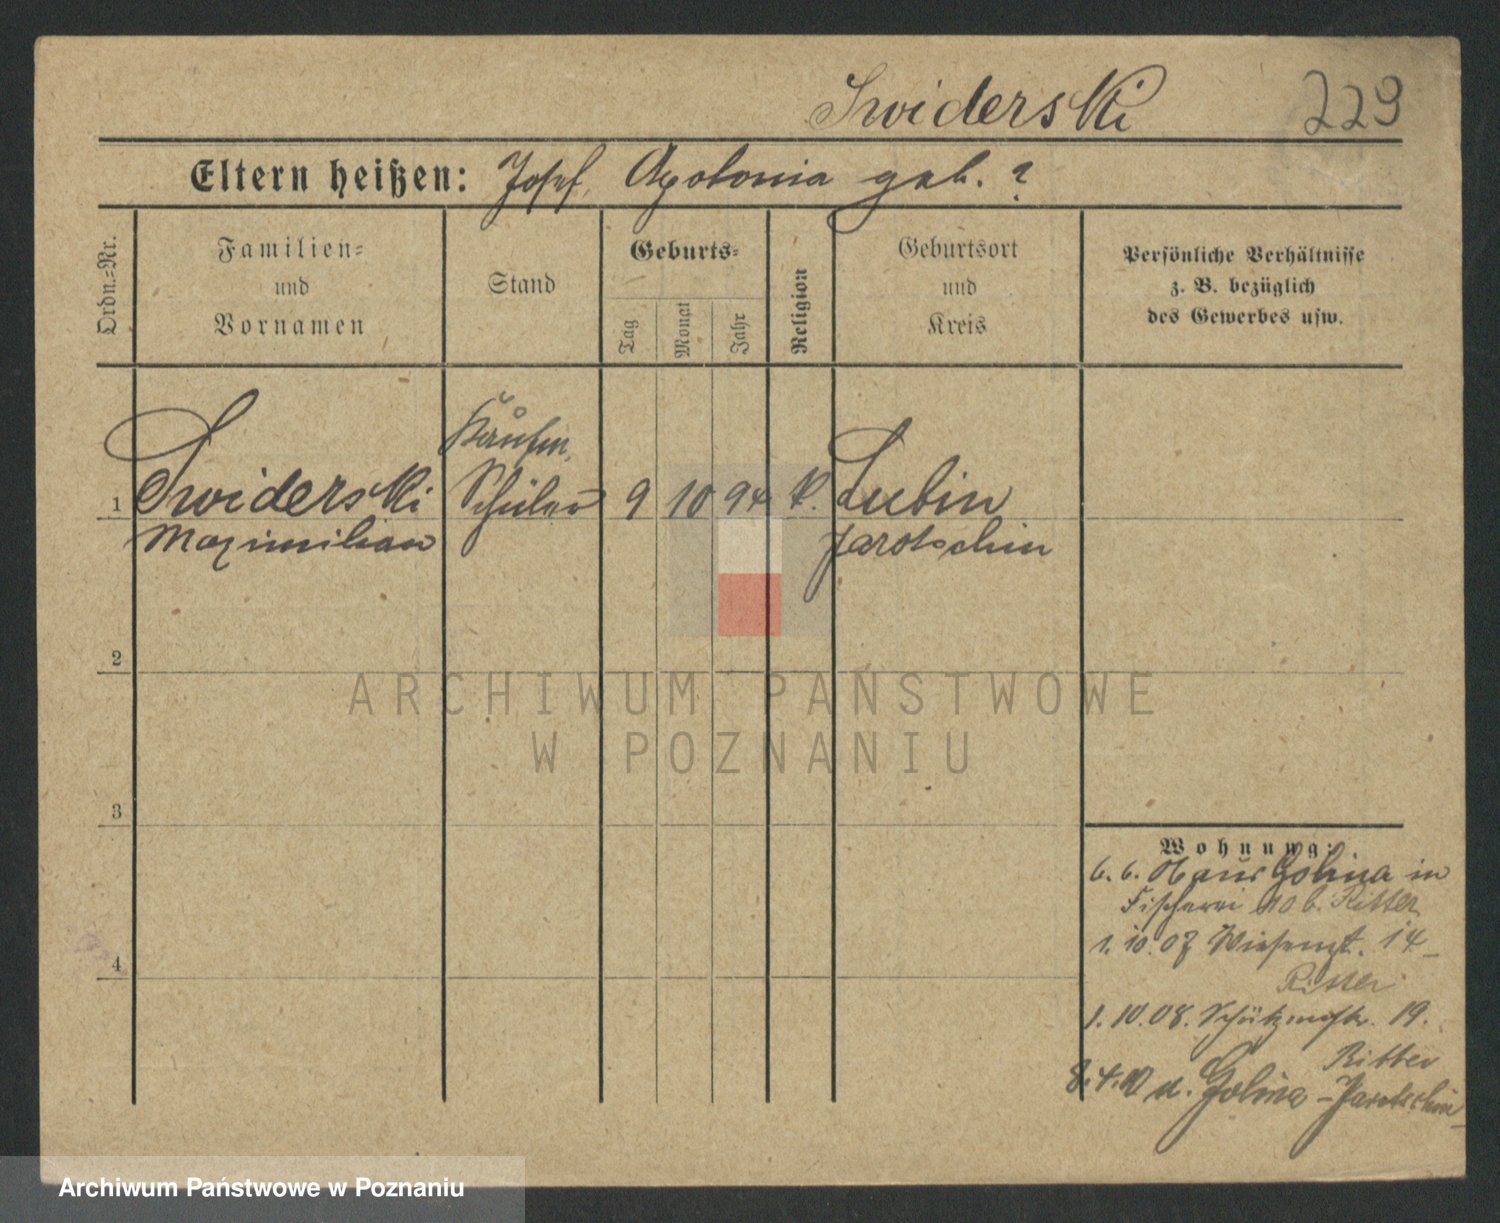 Swiderski 229
Eltern heißen: Josef, Apolonia geb. ?
Ordn.-Nr.
Familien-
und
Vornamen
Stand
Geburts-
Tag
Monat
Jahr
Religion
Geburtsort
und
Kreis
Persönliche Verhältnisse
z. B. bezüglich
des Gewerbes usw.
1 Swiderski Schüler 9 10 94 k. Lubin
Maximilian Jarotschin
2
3
4
Wohnung:
6. 6. 06 aus Golina in
Fischerei 10 b. Ritter
1. 10. 07 Wiesenstr. 14
Ritter
1. 10. 08. Schützenstr. 19.
Ritter
8. 4. 10 n. Golina - Jarotschin
ARCHIWUM PAŃSTWOWE
W POZNANIU
Archiwum Państwowe w Poznaniu